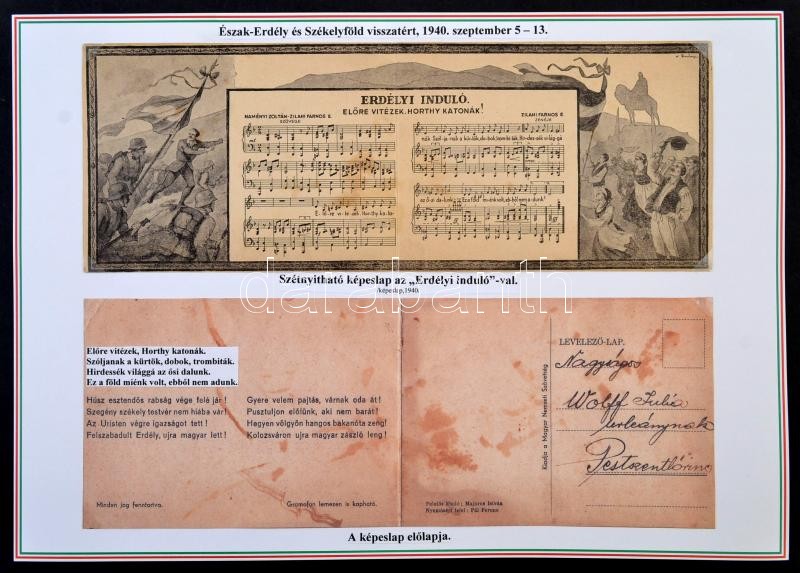 Észak-Erdély és Székelyföld visszatért, 1940. szeptember 5 – 13.
ERDÉLYI INDULÓ.
ELŐRE VITÉZEK, HORTHY KATONÁK!
NAMÉNYI ZOLTÁN-ZILAHI FARNOS E.
SZÖVEGE
ZILAHI FARNOS E
ZENÉJE
Szétnyitható képeslap az „Erdélyi induló”-val.
/képeslap,1940.
darabanth
Előre vitézek, Horthy katonák.
Szóljanak a kürtök, dobok, trombiták.
Hirdessék világgá az ősi dalunk.
Ez a föld miénk volt, ebből nem adunk.
Húsz esztendős rabság vége felé jár!
Szegény székely testvér nem hiába vár!
Az Uristen végre igazságot tett!
Felszabadult Erdély, ujra magyar lett!
Gyere velem pajtás, várnak oda át!
Pusztuljon előlünk, aki nem barát!
Hegyen völgyön hangos bakanóta zeng!
Kolozsváron ujra magyar zászló leng!
Minden jog fenntartva.
Gramofon lemezen is kapható.
Felelős kiadó: Majoros István
Nyomásért felel: Pál Ferenc
Kiadja a Magyar Nemzeti Szövetség
LEVELEZŐ-LAP.
Nagyságos
Wolff Julia
urleánynak
Pestszentlőrinc
A képeslap előlapja.